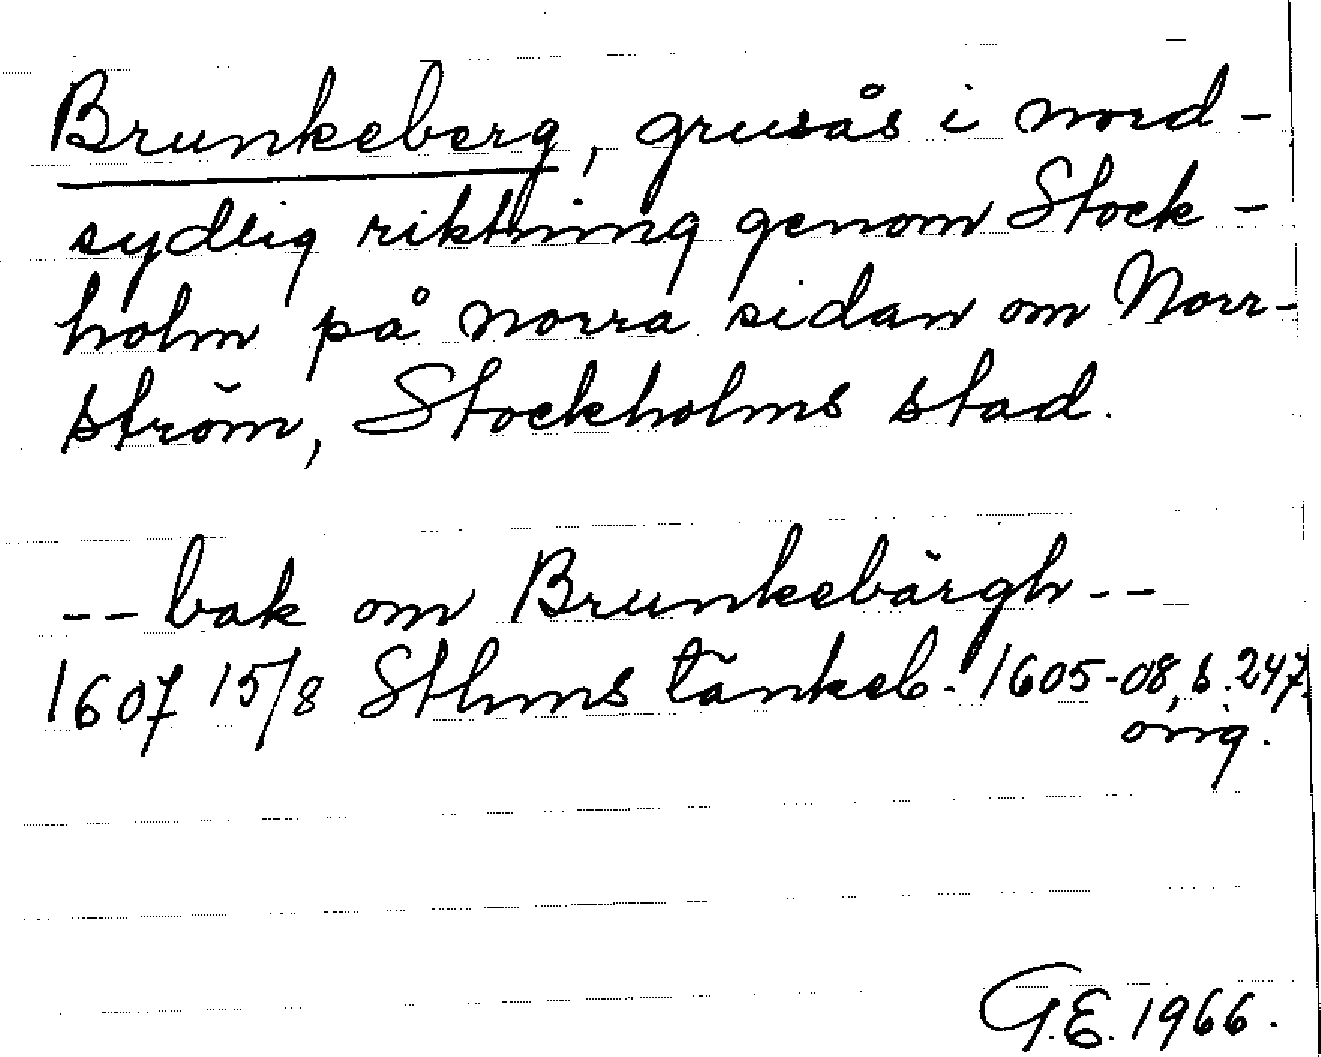 Brunkeberg, grusås i nord-
sydlig riktning genom Stock-
holm på norra sidan om Norr-
ström, Stockholms stad.
-- bak om Brunkebärgh --
1607 15/8 Sthms tänkeb. 1605-08, s. 247,
orig.
G.E. 1966.